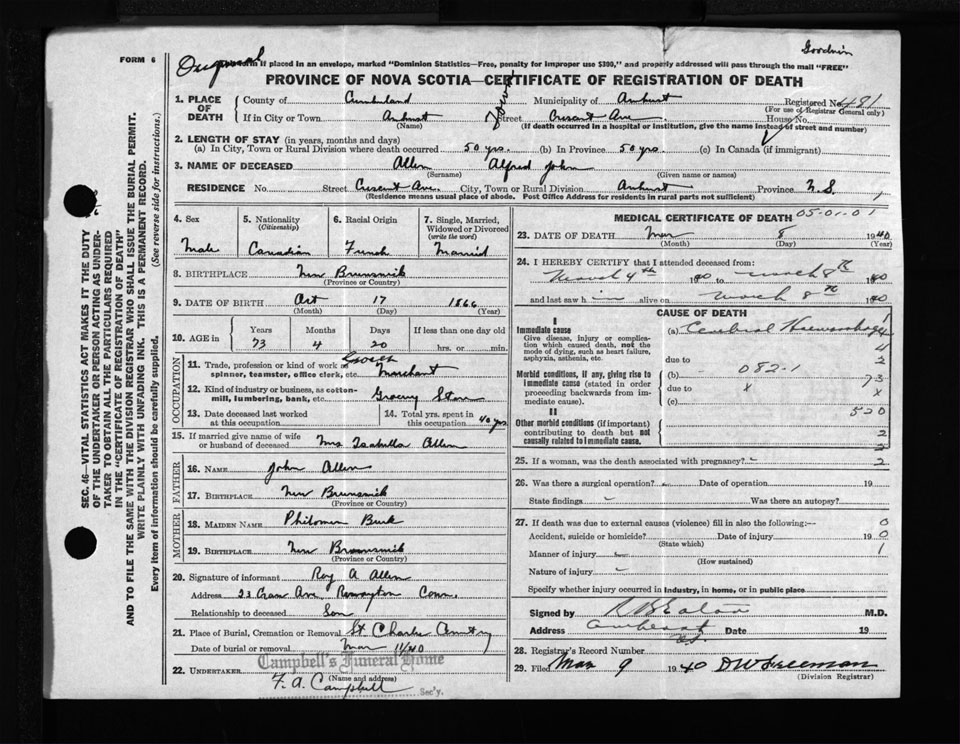 Goodwin
FORM 6
Original
If placed in an envelope, marked "Dominion Statistics—Free, penalty for improper use $300," and properly addressed will pass through the mail "FREE"
PROVINCE OF NOVA SCOTIA—CERTIFICATE OF REGISTRATION OF DEATH
1. PLACE OF DEATH
County of Cumberland Municipality of Amherst Registered No. 481
(For use of Registrar General only)
If in City or Town Amherst Street Crescent Ave House No.
(Name) (If death occurred in a hospital or institution, give the name instead of street and number)
2. LENGTH OF STAY (in years, months and days)
(a) In City, Town or Rural Division where death occurred 50 yrs. (b) In Province 50 yrs. (c) In Canada (if immigrant)
3. NAME OF DECEASED Allen Alfred John
(Surname) (Given name or names)
RESIDENCE No. Street Crescent Ave. City, Town or Rural Division Amherst Province N.S
(Residence means usual place of abode. Post Office Address for residents in rural parts not sufficient)
4. Sex
Male
5. Nationality
(Citizenship)
Canadian
6. Racial Origin
French
7. Single, Married, Widowed or Divorced
(write the word)
Married
8. BIRTHPLACE New Brunswick
(Province or Country)
9. DATE OF BIRTH Oct 17 1866
(Month) (Day) (Year)
10. AGE in Years Months Days If less than one day old
73 4 20 hrs. or min.
OCCUPATION
11. Trade, profession or kind of work as spinner, teamster, office clerk, etc. Merchant
12. Kind of industry or business, as cotton-mill, lumbering, bank, etc. Grocery Store
13. Date deceased last worked at this occupation
14. Total yrs. spent in this occupation 40 yrs
15. If married give name of wife or husband of deceased Mrs. Isabella Allen
FATHER
16. NAME John Allen
17. BIRTHPLACE New Brunswick
(Province or Country)
MOTHER
18. MAIDEN NAME Philomen Burk
19. BIRTHPLACE New Brunswick
(Province or Country)
20. Signature of informant Roy A Allen
Address 23 Ave Rowayton Conn.
Relationship to deceased Son
21. Place of Burial, Cremation or Removal St Charles Cemetery
Date of burial or removal Mar 11/40
Campbell's Funeral Home
22. UNDERTAKER (Name and address)
F. A. Campbell Sec'y.
MEDICAL CERTIFICATE OF DEATH 05-01-01
23. DATE OF DEATH Mar 8 1940
(Month) (Day) (Year)
24. I HEREBY CERTIFY that I attended deceased from:
March 4th 1940 to March 8th 1940
and last saw him alive on March 8th 1940
CAUSE OF DEATH
I
Immediate cause
Give disease, injury or complication which caused death, not the mode of dying, such as heart failure, asphyxia, asthenia, etc.
(a) Cerebral Haemorrhage
due to
Morbid conditions, if any, giving rise to immediate cause (stated in order proceeding backwards from immediate cause).
(b) 082-1
due to x
(c)
II
Other morbid conditions (if important) contributing to death but not causally related to immediate cause.
1
4
2
73
x
520
2
2
2
25. If a woman, was the death associated with pregnancy?
26. Was there a surgical operation? Date of operation 19
State findings Was there an autopsy?
27. If death was due to external causes (violence) fill in also the following:— 0
Accident, suicide or homicide? Date of injury 19 0
(State which)
Manner of injury 1
(How sustained)
Nature of injury
Specify whether injury occurred in industry, in home, or in public place
Signed by M.D.
Address Amherst Date 19
28. Registrar's Record Number
29. Filed Mar 9 1940 D W Freeman
(Division Registrar)
SEC. 46—VITAL STATISTICS ACT MAKES IT THE DUTY OF THE UNDERTAKER OR PERSON ACTING AS UNDERTAKER TO OBTAIN ALL THE PARTICULARS REQUIRED IN THE "CERTIFICATE OF REGISTRATION OF DEATH"
AND TO FILE THE SAME WITH THE DIVISION REGISTRAR WHO SHALL ISSUE THE BURIAL PERMIT.
WRITE PLAINLY WITH UNFADING INK. THIS IS A PERMANENT RECORD.
Every item of information should be carefully supplied. (See reverse side for instructions.)